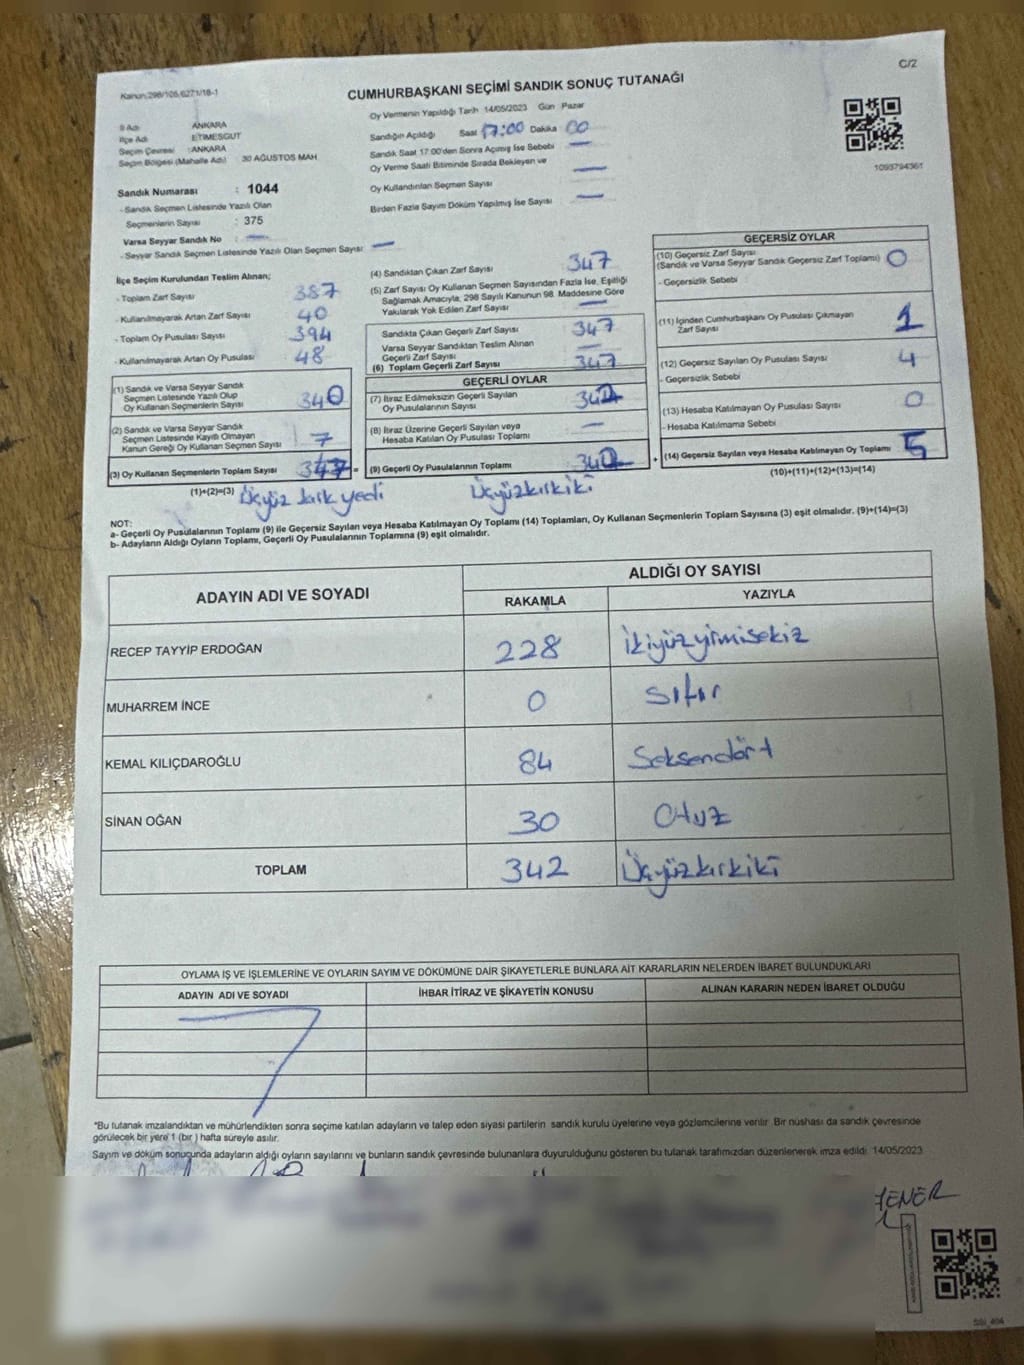 C/2
Kanun:298/105,6271/18-1
CUMHURBAŞKANI SEÇİMİ SANDIK SONUÇ TUTANAĞI
İl Adı : ANKARA
İlçe Adı : ETİMESGUT
Seçim Çevresi : ANKARA
Seçim Bölgesi (Mahalle Adı) : 30 AĞUSTOS MAH.
Sandık Numarası : 1044
- Sandık Seçmen Listesinde Yazılı Olan
Seçmenlerin Sayısı : 375
Varsa Seyyar Sandık No : —
- Seyyar Sandık Seçmen Listesinde Yazılı Olan Seçmen Sayısı : —
Oy Vermenin Yapıldığı Tarih 14/05/2023 Gün Pazar
Sandığın Açıldığı Saat 17:00 Dakika 00
Sandık Saat 17:00'den Sonra Açılmış İse Sebebi —
Oy Verme Saati Bitiminde Sırada Bekleyen ve
Oy Kullandırılan Seçmen Sayısı —
Birden Fazla Sayım Döküm Yapılmış İse Sayısı —
1093794361
İlçe Seçim Kurulundan Teslim Alınan;
- Toplam Zarf Sayısı 387
- Kullanılmayarak Artan Zarf Sayısı 40
- Toplam Oy Pusulası Sayısı 394
- Kullanılmayarak Artan Oy Pusulası 48
(1) Sandık ve Varsa Seyyar Sandık
Seçmen Listesinde Yazılı Olup
Oy Kullanan Seçmenlerin Sayısı 340
(2) Sandık ve Varsa Seyyar Sandık
Seçmen Listesinde Kayıtlı Olmayan
Kanun Gereği Oy Kullanan Seçmen Sayısı 7
(3) Oy Kullanan Seçmenlerin Toplam Sayısı 347 =
(1)+(2)=(3) Üçyüz kırk yedi
(4) Sandıktan Çıkan Zarf Sayısı 347
(5) Zarf Sayısı Oy Kullanan Seçmen Sayısından Fazla İse, Eşitliği
Sağlamak Amacıyla, 298 Sayılı Kanunun 98. Maddesine Göre
Yakılarak Yok Edilen Zarf Sayısı —
Sandıkta Çıkan Geçerli Zarf Sayısı 347
Varsa Seyyar Sandıktan Teslim Alınan
Geçerli Zarf Sayısı —
(6) Toplam Geçerli Zarf Sayısı 347
GEÇERLİ OYLAR
(7) İtiraz Edilmeksizin Geçerli Sayılan
Oy Pusulalarının Sayısı 342
(8) İtiraz Üzerine Geçerli Sayılan veya
Hesaba Katılan Oy Pusulası Toplamı —
(9) Geçerli Oy Pusulalarının Toplamı 342 +
Üçyüzkırkiki
GEÇERSİZ OYLAR
(10) Geçersiz Zarf Sayısı
(Sandık ve Varsa Seyyar Sandık Geçersiz Zarf Toplamı) 0
- Geçersizlik Sebebi
(11) İçinden Cumhurbaşkanı Oy Pusulası Çıkmayan
Zarf Sayısı 1
(12) Geçersiz Sayılan Oy Pusulası Sayısı 4
- Geçersizlik Sebebi
(13) Hesaba Katılmayan Oy Pusulası Sayısı 0
- Hesaba Katılmama Sebebi
(14) Geçersiz Sayılan veya Hesaba Katılmayan Oy Toplamı 5
(10)+(11)+(12)+(13)=(14)
NOT:
a- Geçerli Oy Pusulalarının Toplamı (9) ile Geçersiz Sayılan veya Hesaba Katılmayan Oy Toplamı (14) Toplamları, Oy Kullanan Seçmenlerin Toplam Sayısına (3) eşit olmalıdır. (9)+(14)=(3)
b- Adayların Aldığı Oyların Toplamı, Geçerli Oy Pusulalarının Toplamına (9) eşit olmalıdır.
ADAYIN ADI VE SOYADI
ALDIĞI OY SAYISI
RAKAMLA YAZIYLA
RECEP TAYYİP ERDOĞAN 228 ikiyüzyirmisekiz
MUHARREM İNCE 0 sıfır
KEMAL KILIÇDAROĞLU 84 Seksendört
SİNAN OĞAN 30 Otuz
TOPLAM 342 Üçyüzkırkiki
OYLAMA İŞ VE İŞLEMLERİNE VE OYLARIN SAYIM VE DÖKÜMÜNE DAİR ŞİKAYETLERLE BUNLARA AİT KARARLARIN NELERDEN İBARET BULUNDUKLARI
ADAYIN ADI VE SOYADI İHBAR İTİRAZ VE ŞİKAYETİN KONUSU ALINAN KARARIN NEDEN İBARET OLDUĞU
*Bu tutanak imzalandıktan ve mühürlendikten sonra seçime katılan adayların ve talep eden siyasi partilerin sandık kurulu üyelerine veya gözlemcilerine verilir. Bir nüshası da sandık çevresinde
görülecek bir yere 1 (bir) hafta süreyle asılır.
Sayım ve döküm sonucunda adayların aldığı oyların sayılarını ve bunların sandık çevresinde bulunanlara duyurulduğunu gösteren bu tutanak tarafımızdan düzenlenerek imza edildi. 14/05/2023